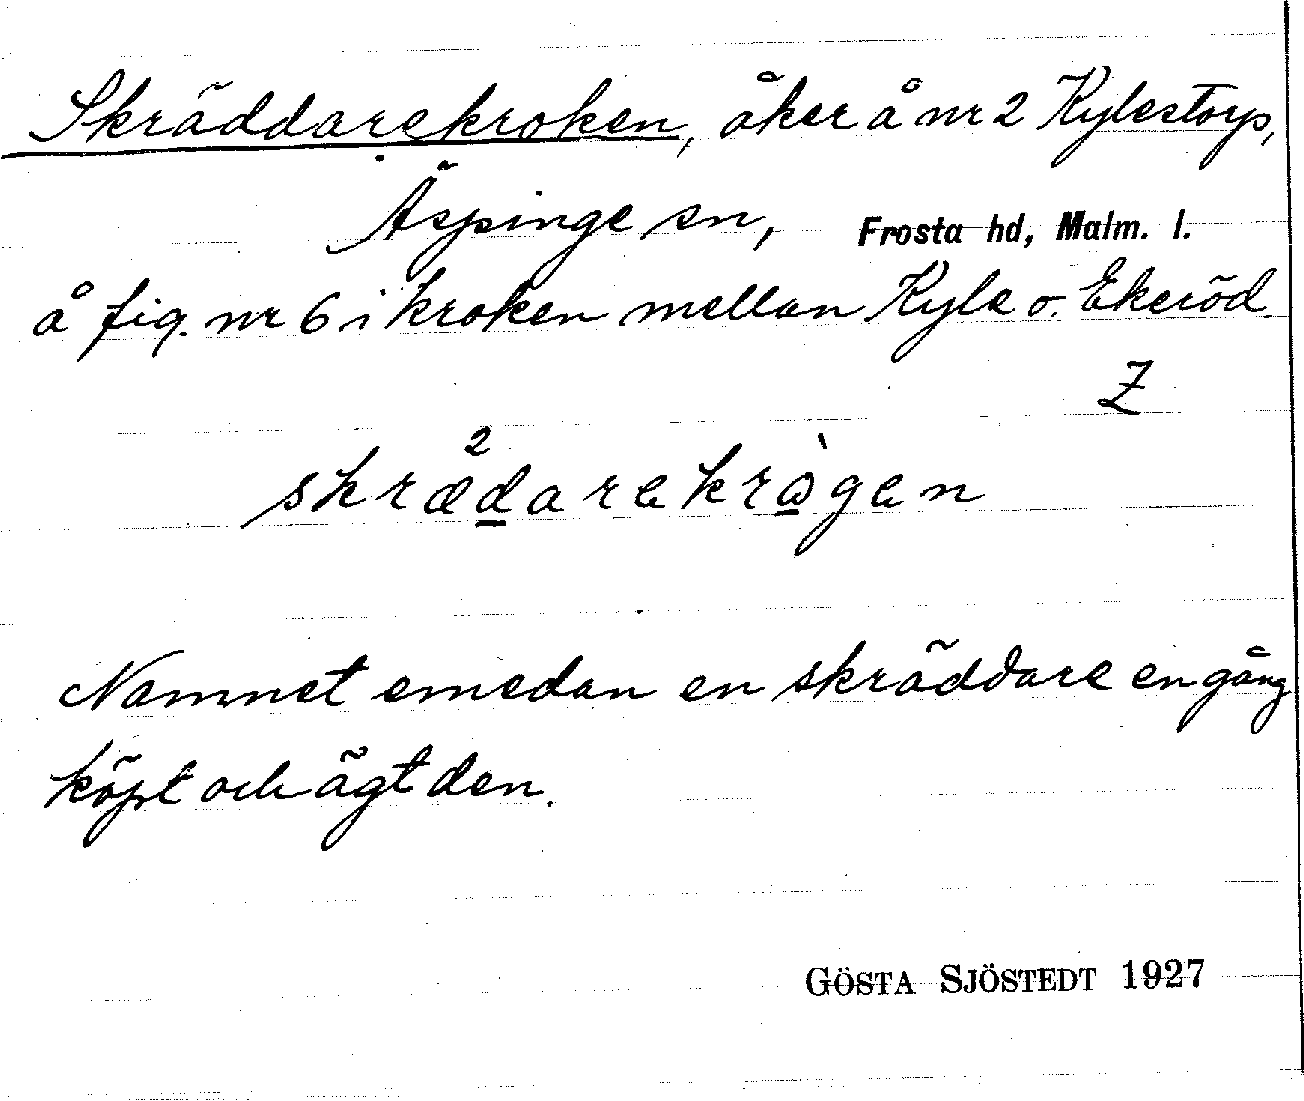 Skräddarekroken, åker å nr 2 Kylestorp,
Äspinge sn, Frosta hd, Malm. l.
å fig. nr 6 i kroken mellan Kyle o. Ekeröd.
Z
skræ²darekrɷ̀gen
Namnet emedan en skräddare en gång
köpt och ägt den.
GÖSTA SJÖSTEDT 1927